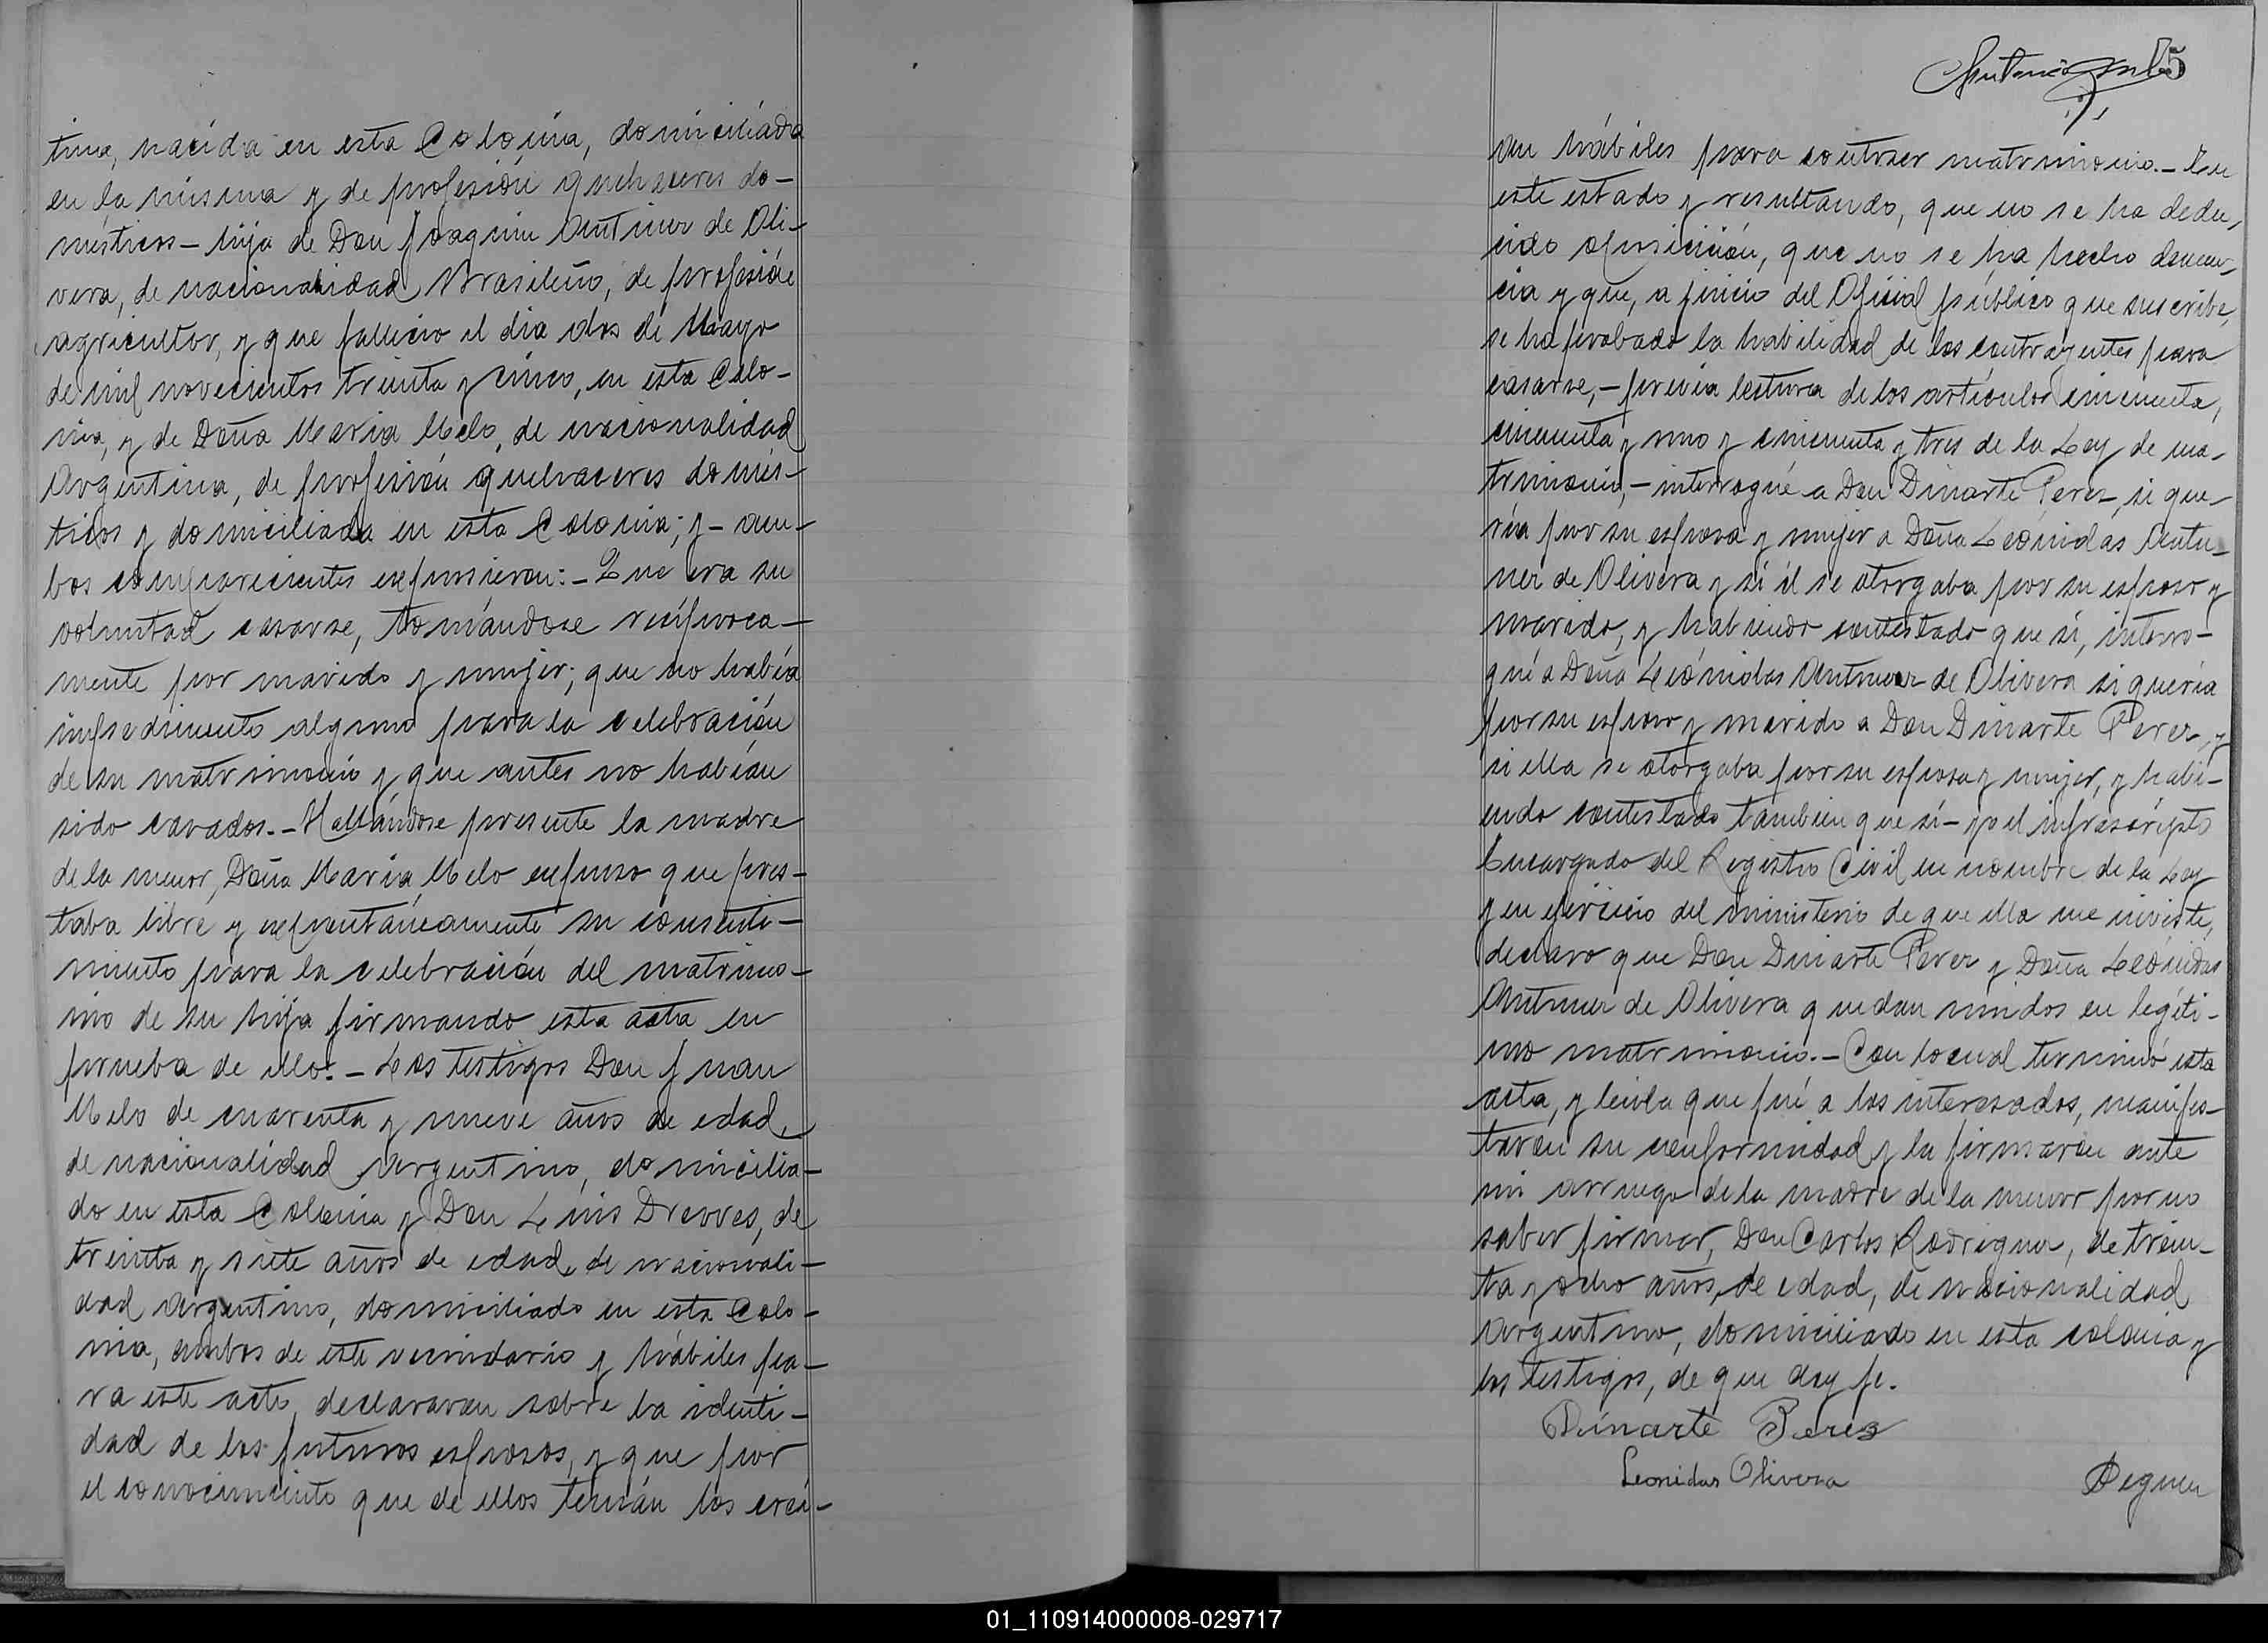 tina, nacida en esta Colonia, domiciliada
en la misma y de profesión quehaceres do-
mésticos - hija de Don Joaquin Antunez de Oli-
vera, de nacionalidad Brasileño, de profesión
agricultor, y que fallecio el dia dos de Mayo
de mil novecientos treinta y cinco, en esta Colo-
nia, y de Doña Maria Melo, de nacionalidad
Argentina, de profesión quehaceres domés-
ticos y domiciliada en esta Colonia; y - am-
bos comparecientes expusieron: - Que era su
voluntad casarse, tomándose recíproca-
mente por marido y mujer; que no había
impedimento alguno para la celebración
de su matrimonio y que antes no habían
sido casados. - Hallándose presente la madre
de la menor, Doña Maria Melo expuso que pres-
taba libre y expontáneamente su consenti-
miento para la celebración del matrimo-
nio de su hija firmando esta acta en
prueba de ello. - Los testigos Don Juan
Melo de cuarenta y nueve años de edad,
de nacionalidad Argentino, domicilia-
do en esta Colonia y Don Luis Drewes, de
treinta y siete años de edad, de nacionali-
dad Argentino, domiciliado en esta Colo-
nia, ambos de este vecindario y hábiles pa-
ra este acto, declararon sobre la identi-
dad de los futuros esposos, y que por
el conocimiento que de ellos tenían los creí-
5
an hábiles para contraer matrimonio. - En
este estado y resultando, que no se ha dedu-
cido oposición, que no se ha hecho denun-
cia y que, a juicio del Oficial público que suscribe,
se ha probado la habilidad de los contrayentes para
casarse, - previa lectura de los artículos cincuenta,
cincuenta y uno y cincuenta y tres de la Ley de ma-
trimonio, - interrogué a Don Dinarte Perez, si que-
ría por su esposa y mujer a Doña Leónidas Antu-
nez de Olivera y si él se otorgaba por su esposo y
marido, y habiendo contestado que sí, interro-
gué a Doña Leónidas Antunez de Olivera si quería
por su esposo y marido a Don Dinarte Perez, y
si ella se otorgaba por su esposa y mujer, y habi-
endo contestado tambien que sí - yo el infrascripto
Encargado del Registro Civil en nombre de la Ley
y en ejercicio del ministerio de que ella me inviste,
declaro que Don Dinarte Perez y Doña Leónidas
Antunez de Olivera quedan unidos en legíti-
mo matrimonio. - Con lo cual terminó esta
acta, y leída que fué a los interesados, manifes-
taron su conformidad y la firmaron ante
mi a ruego de la madre de la menor por no
saber firmar, Don Carlos Rodriguez, de trein-
ta y ocho años, de edad, de nacionalidad
Argentino, domiciliado en esta colonia y
los testigos, de que doy fe.
Dinarte Perez
Leonidas Olivera
01_110914000008-029717